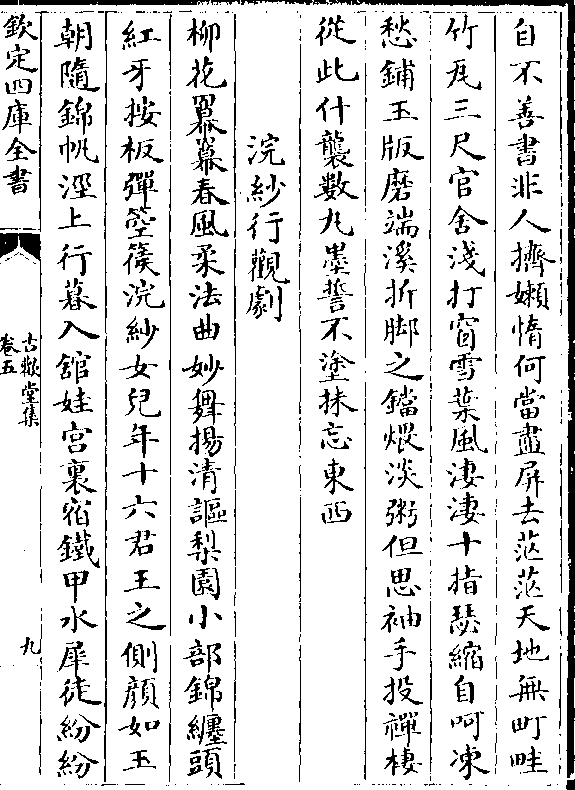 自不善書非人擠嬾惰何當盡屏去茫茫天地無町畦
竹瓦三尺官舍淺打窗雪葉風淒淒十指瑟縮自呵凍
愁鋪玉版磨端溪折脚之鐺煨淡粥但思袖手投禪棲
從此什襲數丸墨誓不塗抹忘東西
浣紗行觀劇
柳花羃䍥春風柔法曲妙舞揚清謳梨園小部錦纏頭
紅牙按板彈箜篌浣紗女兒年十六君王之側顔如玉
朝隨錦帆涇上行暮入館娃宮裏宿鐵甲水犀徒紛紛
欽定四庫全書
古歡堂集
卷五
九